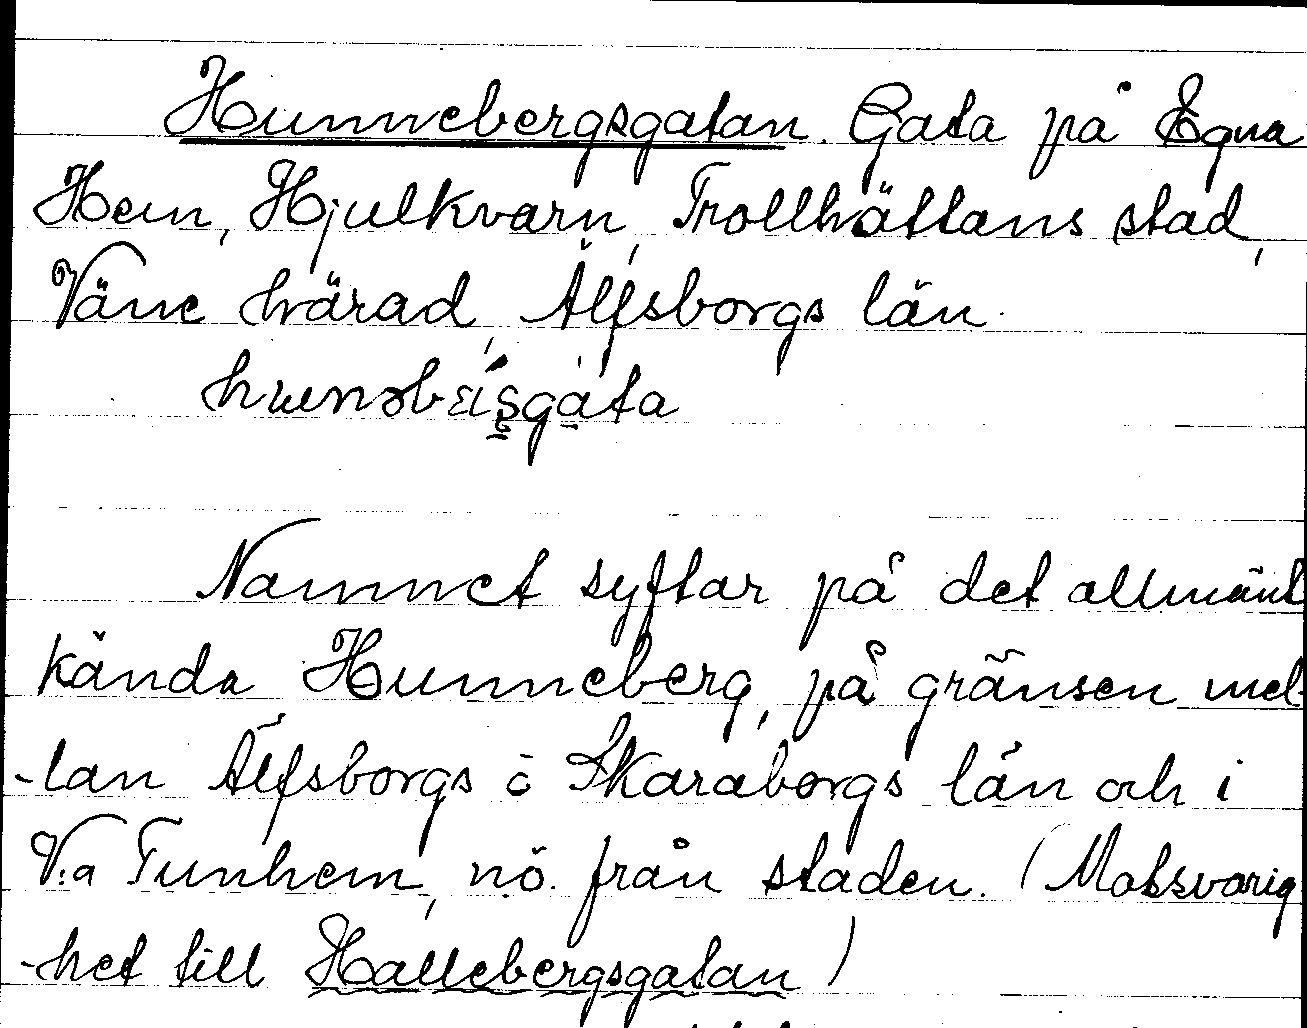 Hunnebergsgatan. Gata på Egna
Hem, Hjulkvarn, Trollhättans stad,
Väne härad, Älfsborgs län.
Namnet syftar på det allmänt
kända Hunneberg, på gränsen mel-
-lan Älfsborgs o Skaraborgs län och i
V:a Tunhem, nö. från staden. (Motsvarig
-het till Hallebergsgatan)